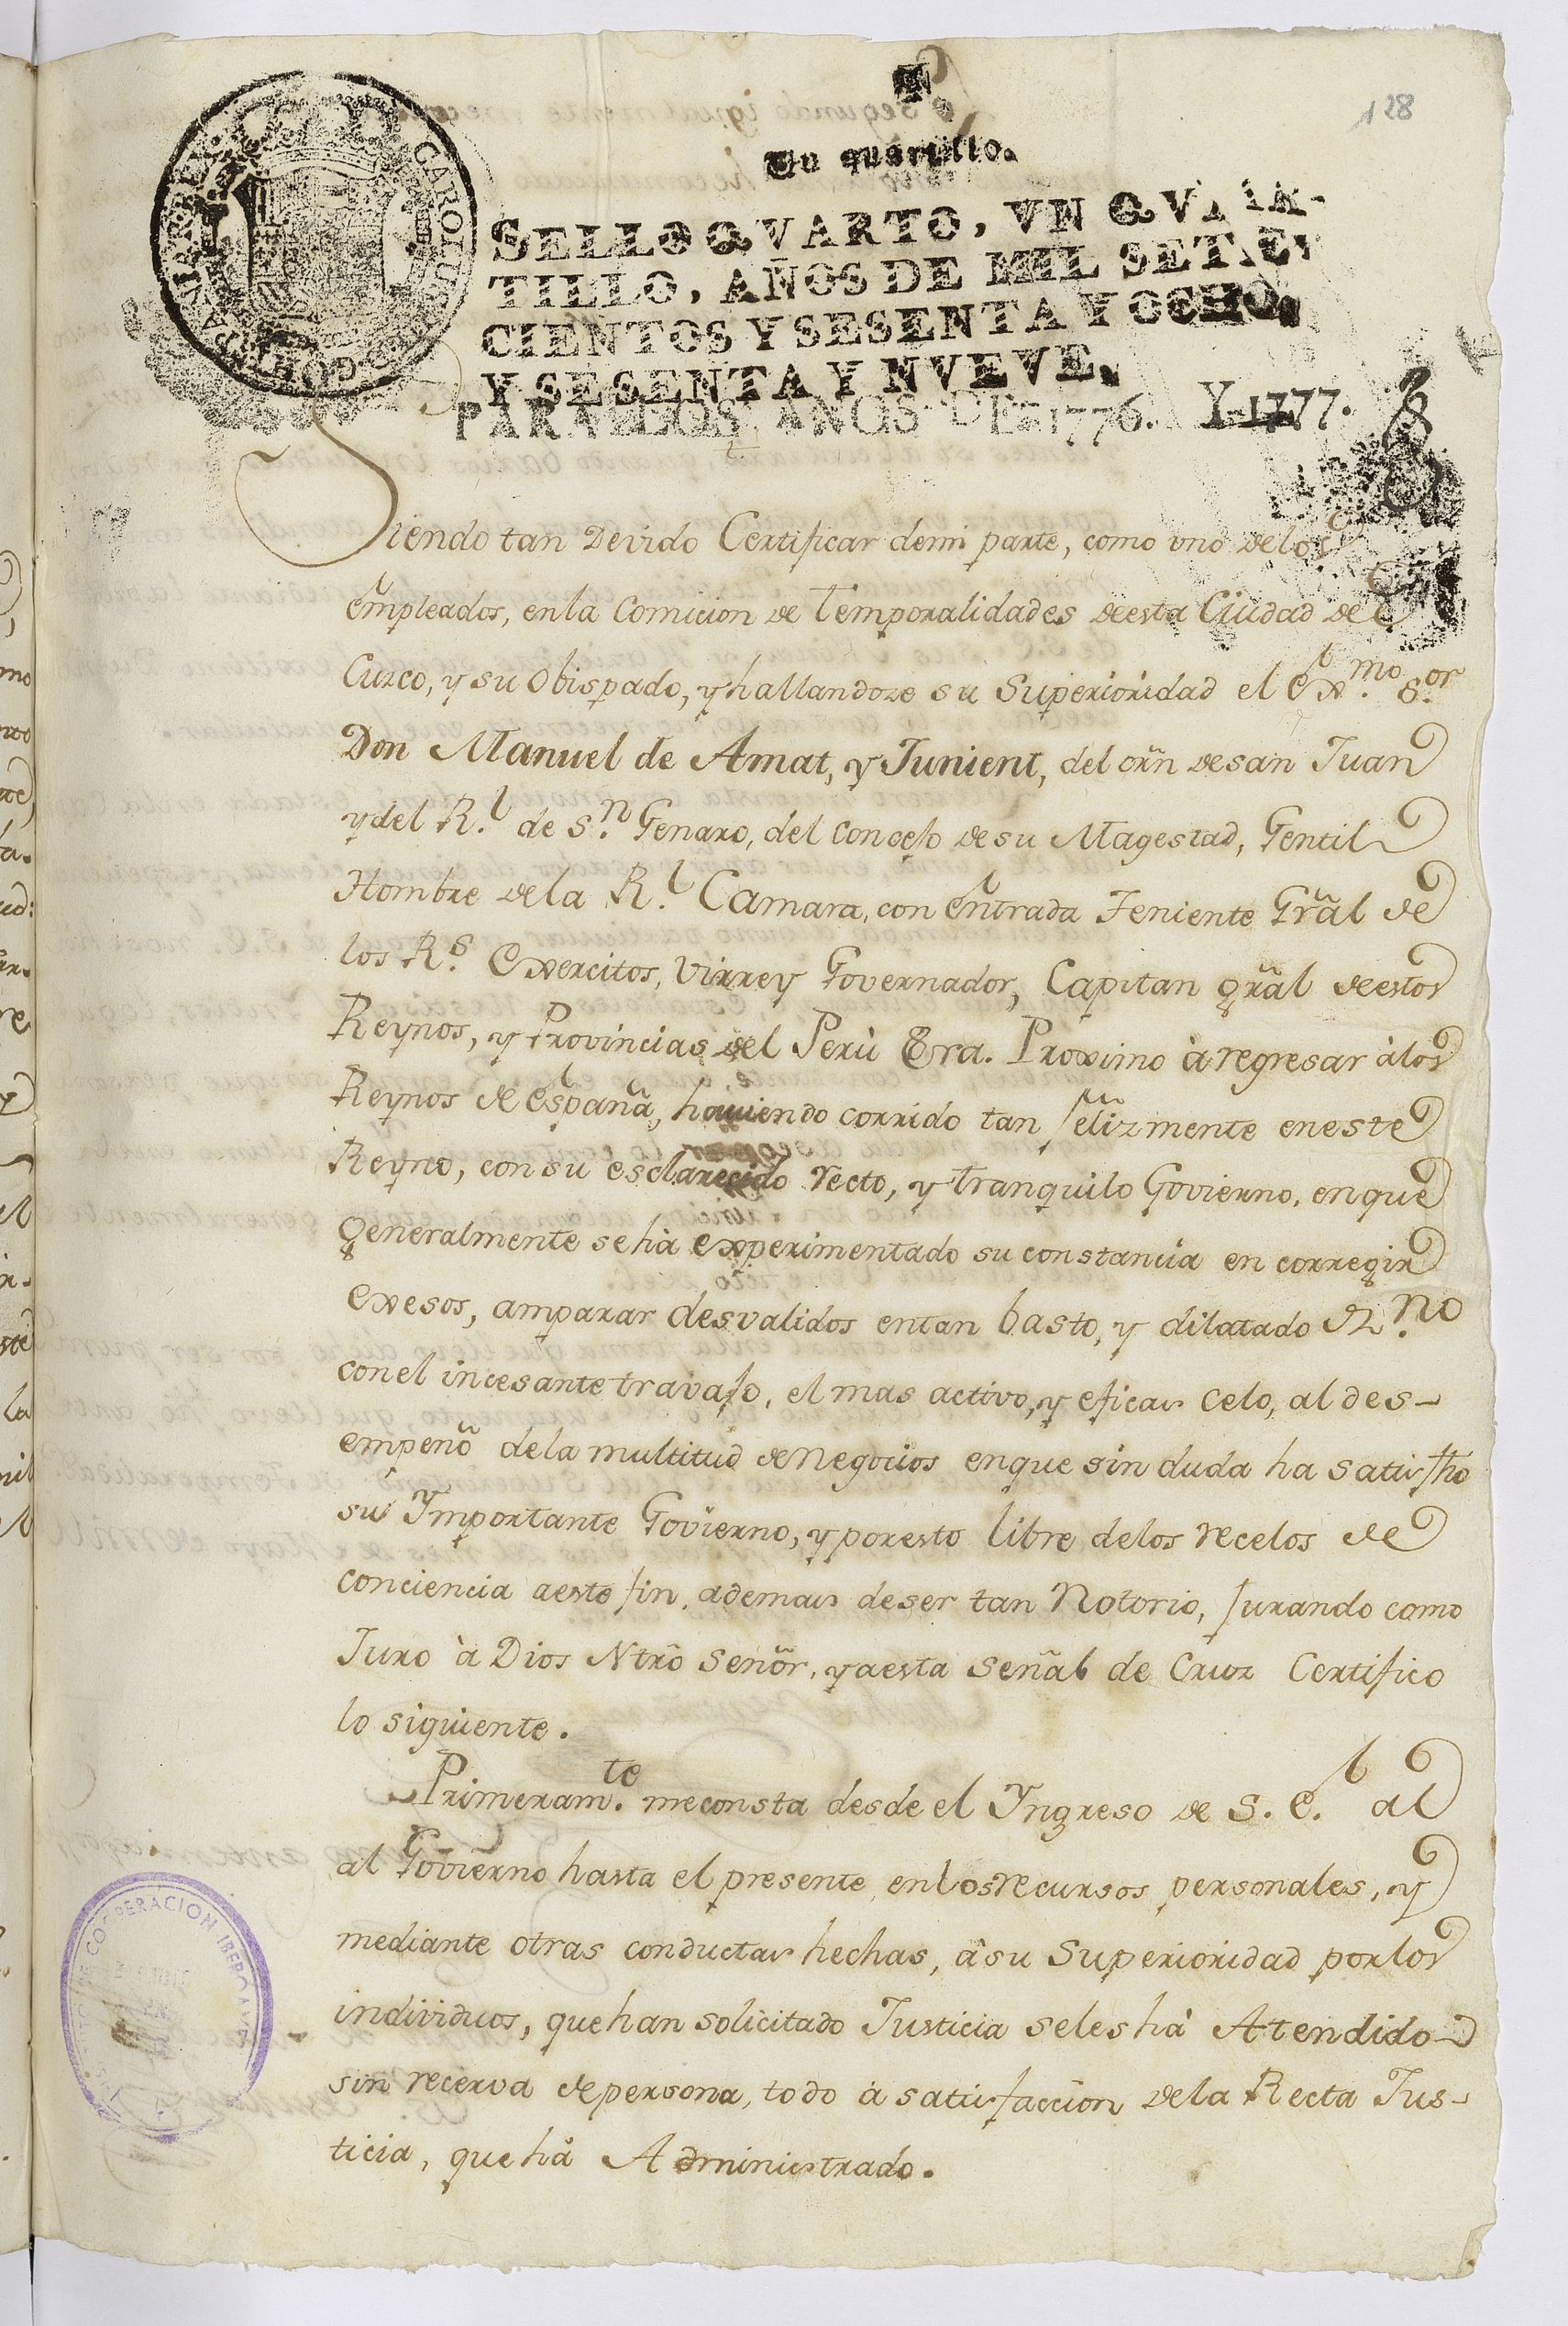 128
Un quartillo.
SELLO QVARTO, VN QVAR-
TILLO, AÑOS DE MIL SETE-
CIENTOS Y SESENTA Y OCHO,
Y SESENTA Y NVEVE.
PARA LOS AÑOS DE 1776. Y 1777.
CAROLUS
Siendo tan Devido Certificar demi parte, como uno delos
empleados, enla Comicion de Temporalidades deesta Ciudad de
Cuzco, y su Obispado, y hallandoze su Superioridad el Exmo. Sor.
Don Manuel de Amat, y Junient, del orñ de san Juan
y del Rl. de Sn. Genaro, del Concejo de su Magestad, Gentil
Hombre dela Rl. Camara, con entrada Teniente Grãl de
los Rs. Exercitos, Virrey Governador, Capitan grãl deestos
Reynos, y Provincias del Perù &ra. Proximo à regresar àlos
Reynos de España, haviendo corrido tan felizmente eneste
Reyno, con su esclarecido recto, y tranquilo Govierno, enque
generalmente se hà experimentado su constancia en corregir
exesos, amparar desvalidos entan basto, y dilatado Rno.
conel incesante travajo, el mas activo, y eficas celo, al des-
empeño dela multitud de Negocios enque sin duda ha satisfho
su Ymportante Govierno, y poresto libre delos recelos de
conciencia aeste fin, ademas deser tan Notorio, Jurando como
Juro à Dios Ntrõ Señor, y aesta Señal de Cruz Certifico
lo siguiente.
Primeramte. meconsta desde el Yngreso de S. E. al
al Govierno hasta el presente, enlos recursos personales, y
mediante otras conductas hechas, âsu Superioridad por los
individuos, quehan solicitado Justicia seles hà Atendido
sin recerva depersona, todo à satisfaccion dela Recta Jus-
ticia, que hà Administrado.
COOPERACION IBEROAM